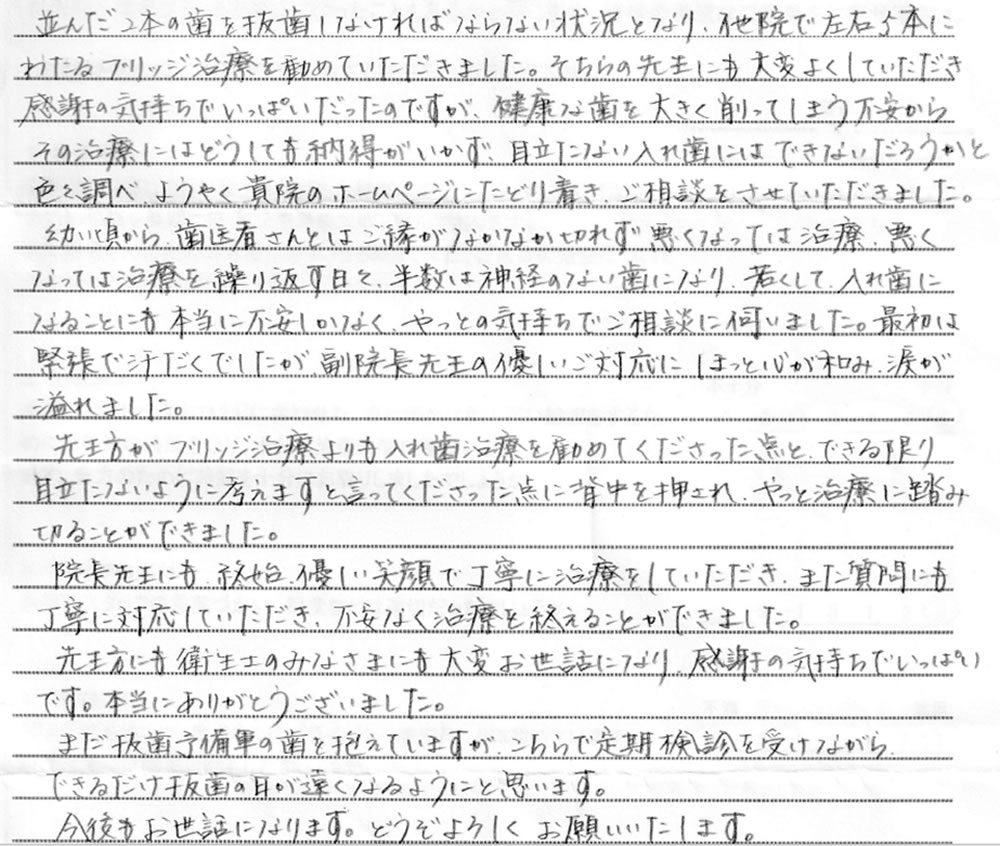 並んだ2本の歯を抜歯しなければならない状況となり、他院で左右5本に
わたるブリッジ治療を勧めていただきました。そちらの先生にも大変よくしていただき
感謝の気持ちでいっぱいだったのですが、健康な歯を大きく削ってしまう不安から
その治療にはどうしても納得がいかず、目立たない入れ歯にはできないだろうかと
色々調べ、ようやく貴院のホームページにたどり着き、ご相談をさせていただきました。
幼い頃から、歯医者さんとはご縁がなかなか切れず悪くなっては治療、悪く
なっては治療を繰り返す日々、半数は神経のない歯になり、若くして、入れ歯に
なることにも本当に不安しかなく、やっとの気持ちでご相談に伺いました。最初は
緊張で汗だくでしたが副院長先生の優しいご対応にほっと心が和み、涙が
溢れました。
先生方がブリッジ治療よりも入れ歯治療を勧めてくださった点と、できる限り
目立たないように考えますと言ってくださった点に背中を押され、やっと治療に踏み
切ることができました。
院長先生にも、終始、優しい笑顔で丁寧に治療をしていただき、また質問にも
丁寧に対応していただき、不安なく治療を終えることができました。
先生方にも衛生士のみなさまにも大変お世話になり、感謝の気持ちでいっぱい
です。本当にありがとうございました。
まだ抜歯予備軍の歯を抱えていますが、こちらで定期検診を受けながら、
できるだけ抜歯の日が遠くなるようにと思います。
今後もお世話になります。どうぞよろしくお願いいたします。